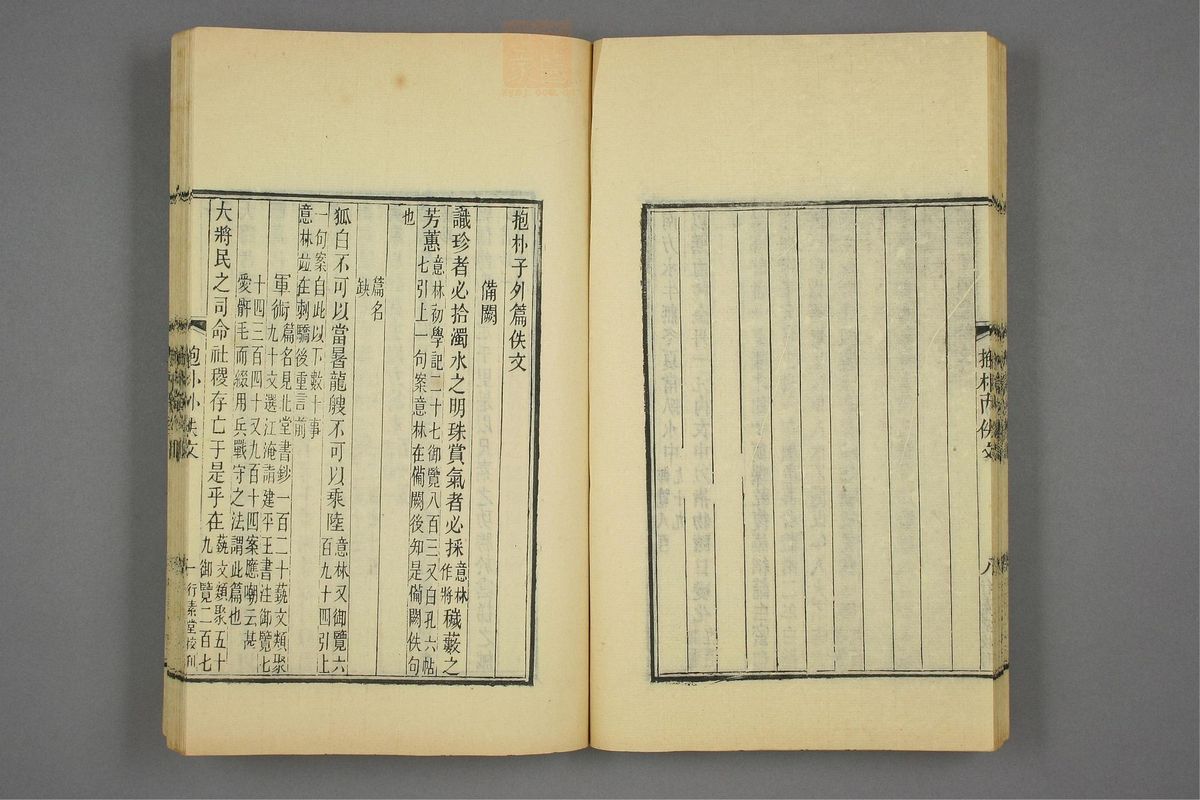 抱朴內佚文
八
抱朴子外篇佚文
備闕
識珍者必拾濁水之明珠賞氣者必採意林作將穢藪之
芳蕙意林初學記二十七御覽八百三又白孔六帖
七引上一句案意林在備闕後知是備闕佚句
也
篇名
缺
狐白不可以當暑龍艘不可以乘陸意林又御覽六
百九十四引上
一句案自此以下數十事
意林並在刺驕後重言前
軍術篇名見北堂書鈔一百二十藝文類聚
九十文選江淹詣建平王書注御覽七
十四三百四十又九百十四案應嘲云甚
愛骭毛而綴用兵戰守之法謂此篇也
大將民之司命社稷存亡于是乎在藝文類聚五十
九御覽二百七
佚文
一
行素堂校刊